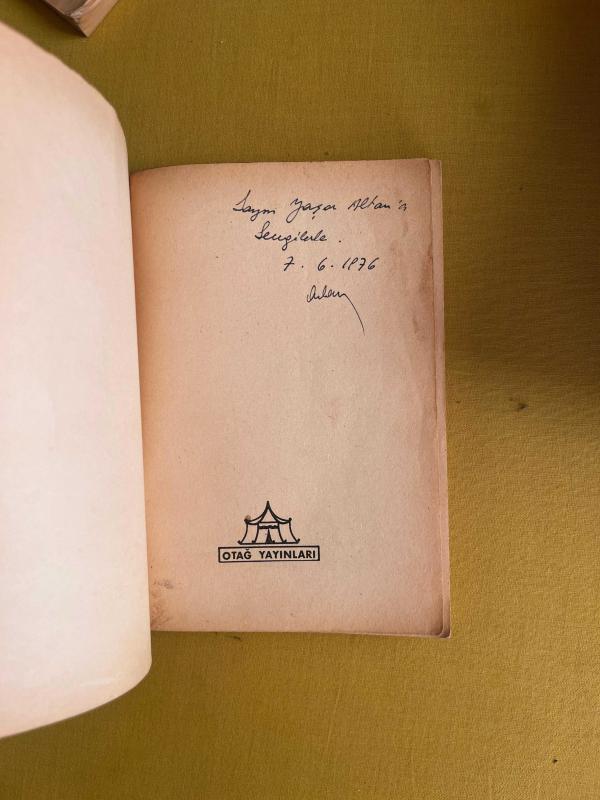 Sayın Yaşar Altan'a
Sevgilerle.
7.6.1976
OTAĞ YAYINLARI